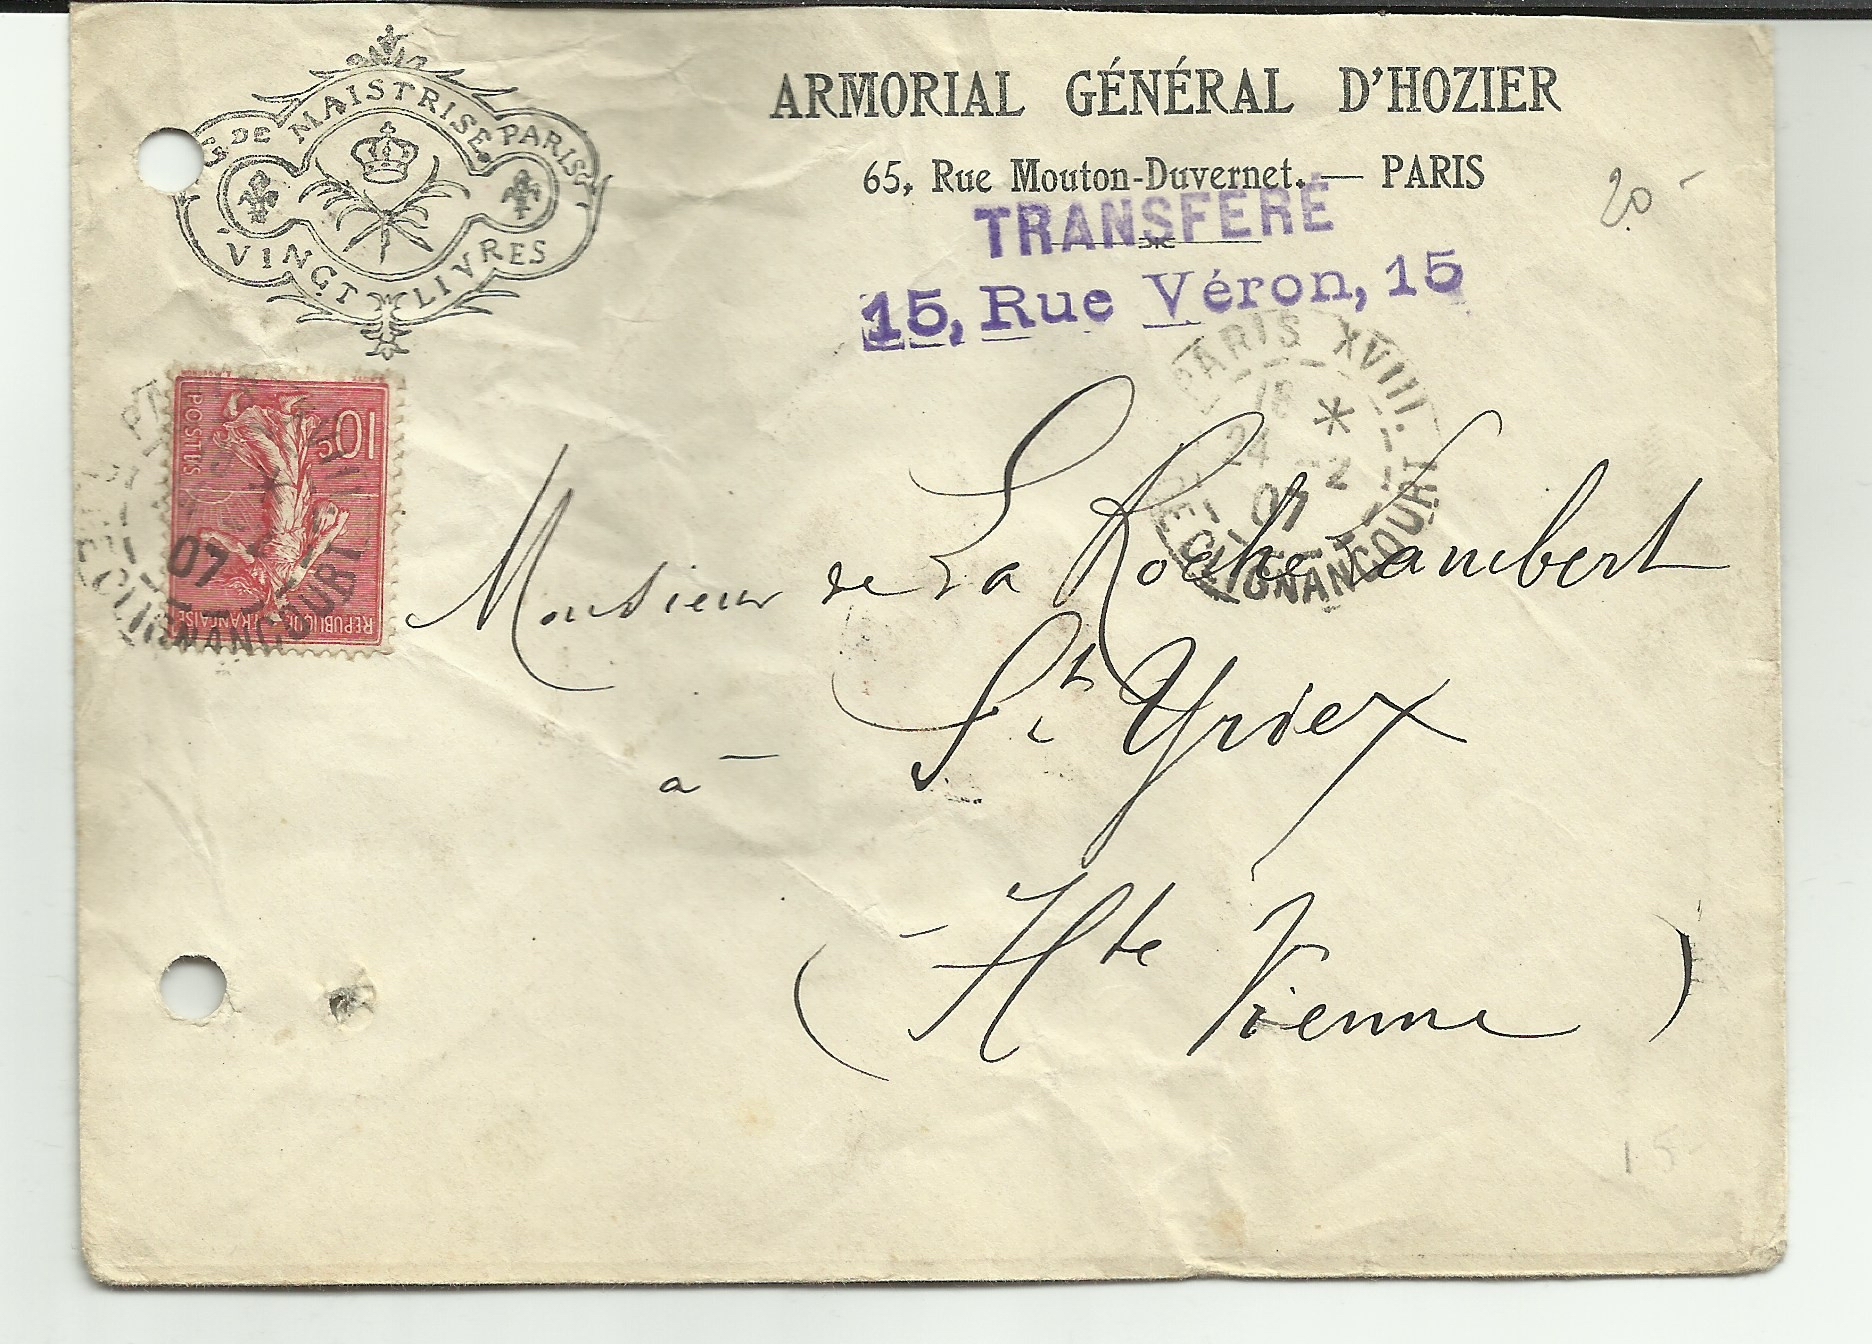 DE MAISTRISE. PARIS
VINGT LIVRES
ARMORIAL GÉNÉRAL D'HOZIER
65, Rue Mouton-Duvernet. — PARIS
20 -
TRANSFÉRÉ
15, Rue Véron, 15
PARIS XVIII.
18 *
24 -2
07
R. DE CLIGNANCOURT
10c
POSTES
REPUBLIQUE FRANÇAISE
07
CLIGNANCOURT
Monsieur de La Roche Lambert
à St Yrieix
(Hte Vienne)
15-